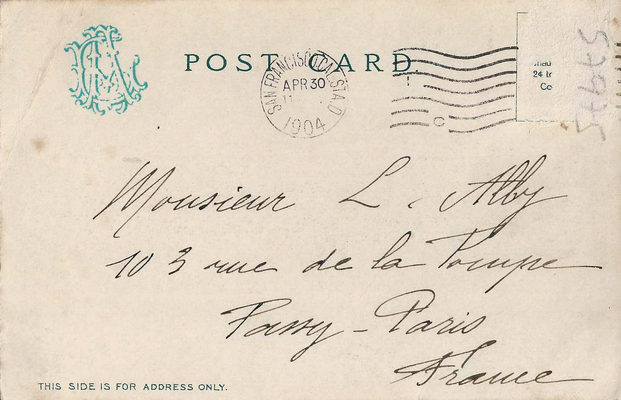 POST CARD
SAN FRANCISCO, CAL. STA. D
APR 30
1904
C
24
Co
Monsieur L. Alby
103 rue de la Pompe
Passy - Paris
France
THIS SIDE IS FOR ADDRESS ONLY.